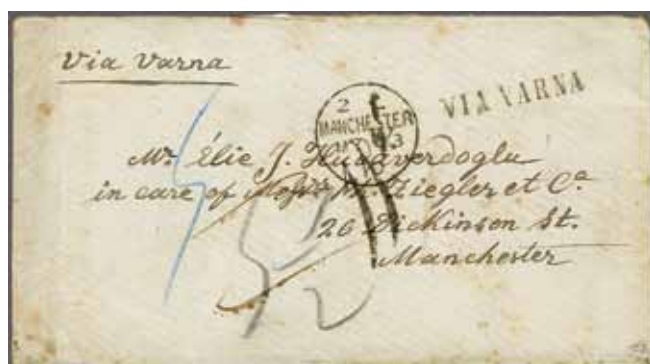 Via Varna
VIA VARNA
2
MANCHESTER
3
Mr. Élie J. Hudaverdoglu
in care of Ziegler et Cº
26 Dickinson St.
Manchester